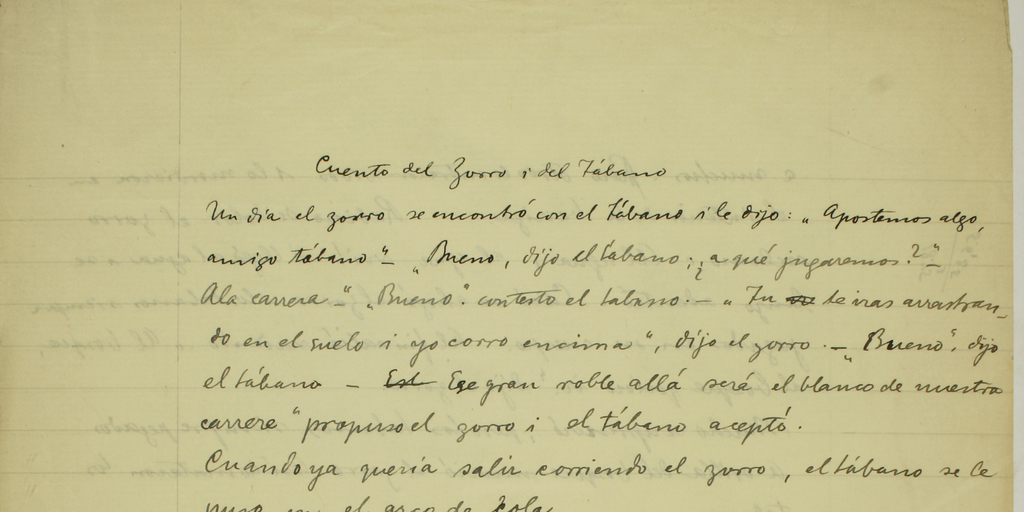 Cuento del Zorro i del Tábano
Un dia el zorro se encontró con el tábano i le dijo: „Apostemos algo,
amigo tábano“ – „Bueno, dijo el tábano; ¿a qué jugaremos?“ –
A la carrera –“ „Bueno“. contesto el tabano. – „Tu te iras arrastran-
do en el suelo i yo corro encima“, dijo el zorro. – „Bueno“, dijo
el tábano – Est Ese gran roble allá será el blanco de nuestra
carrere“ propuso el zorro i el tábano aceptó.
Cuando ya queria salir corriendo el zorro, el tábano se le
puso en el arco de cola